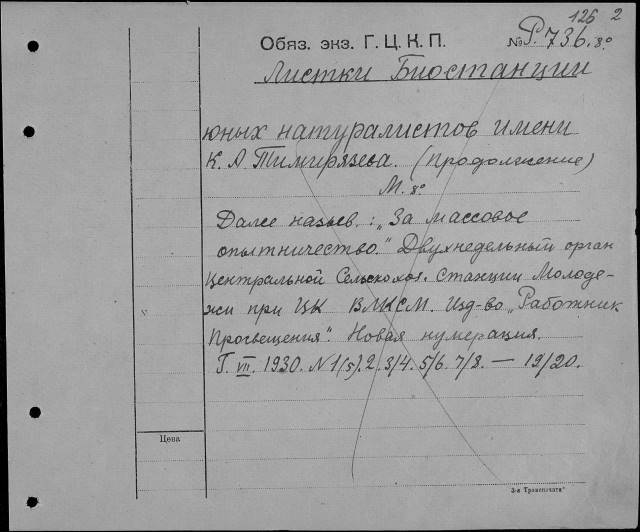 126 2
Обяз. экз. Г. Ц. К. П. № Р.736. 8°
Листки Биостанции
юных натуралистов имени
К. А. Тимирязева. (Продолжение)
М. 8°
Далее назыв.: „За массовое
опытничество." Двухнедельный орган
Центральной Сельскохоз. Станции Молоде-
жи при ЦК ВЛКСМ. Изд-во „Работник
Просвещения". Новая нумерация.
Г. VII. 1930. N 1(5). 2. 3/4. 5/6. 7/8. — 19/20.
Цена
3-я Транспечати"